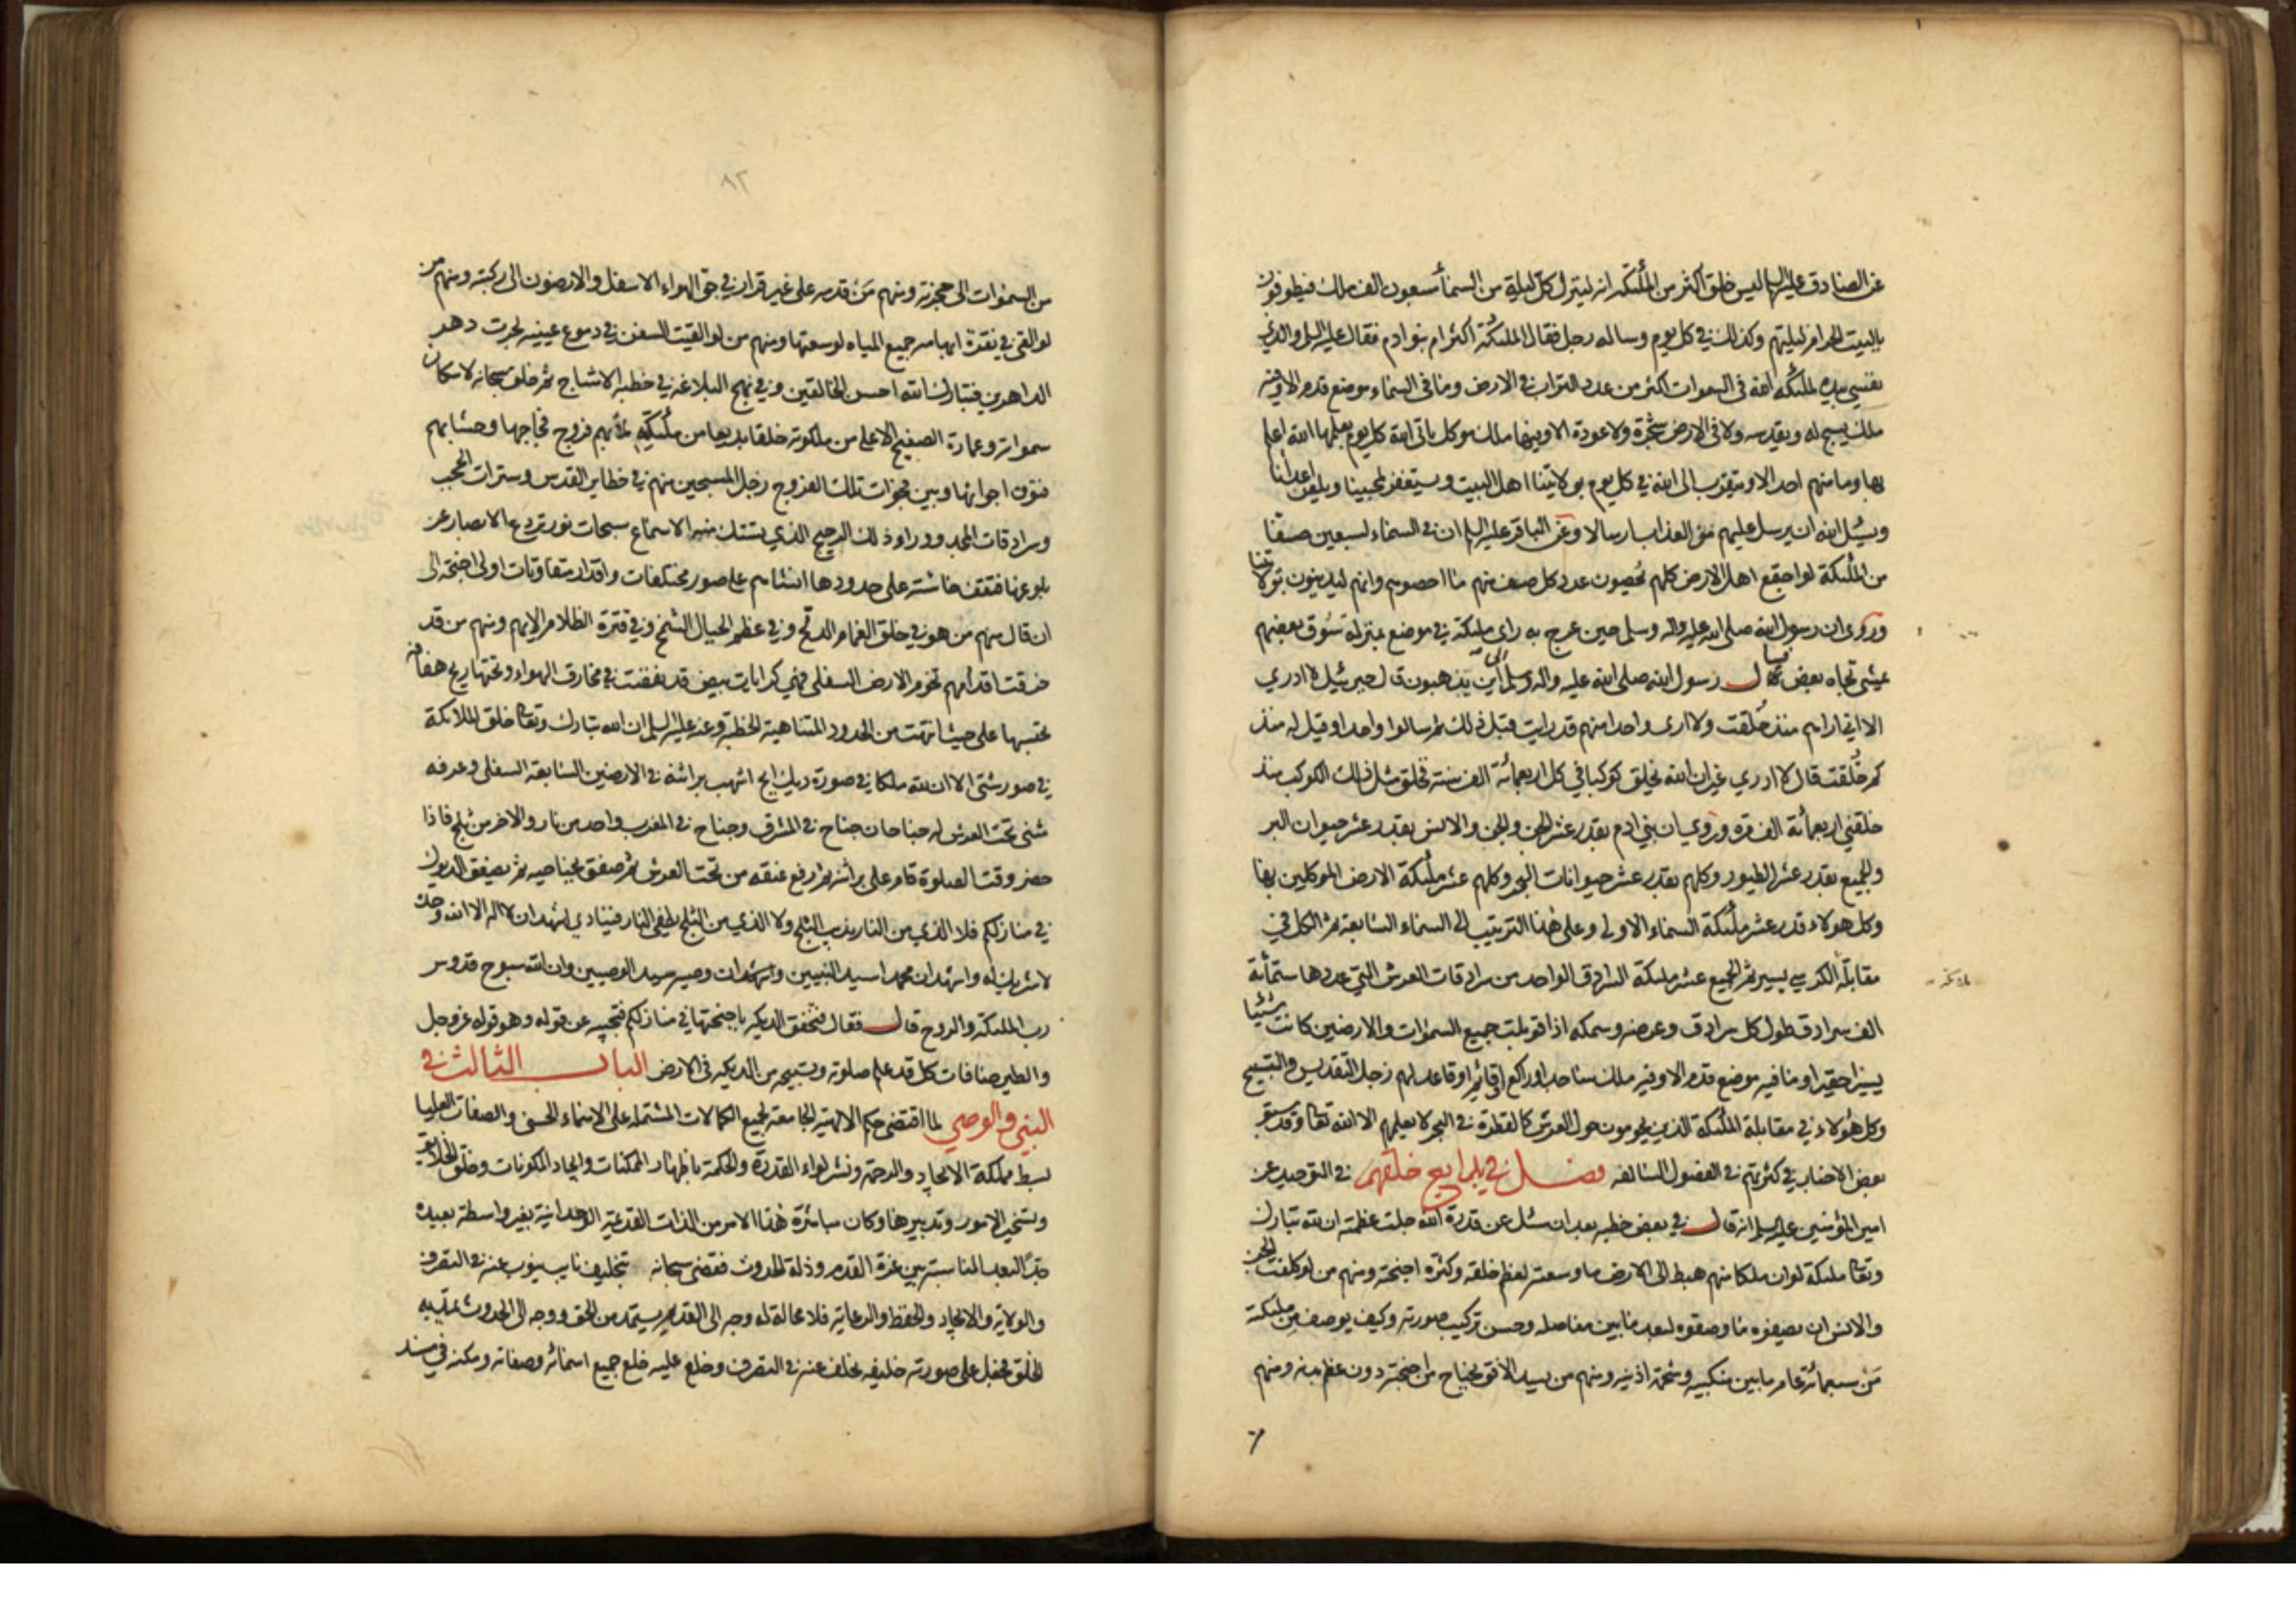 عن الصادق عليه السلام ليس خلق اكثر من الملئكة انه لينزل كل ليلة من السماء سبعون الف ملك فيطوفون
بالبيت الحرام ليلتهم وكذلك في كل يوم وساله رجل فقال الملئكة اكثر ام بنو ادم فقال عليه السلم والذي
نفسي بيده لملئكة الله في السموات اكثر من عدد التراب في الارض وما في السماء موضع قدم الا وفيه
ملك يسبح له ويقدسه ولا في الارض شجرة ولا عودة الا وفيها ملك موكل ياتي الله كل يوم بعلمها الله اعلم
بها وما منهم احد الا ويتقرب الى الله في كل يوم بولايتنا اهل البيت ويستغفر لمحبينا ويلعن اعدائنا
ويسئل الله ان يرسل عليهم من العذاب ارسالا وعن الباقر عليه السلم ان في السماء لسبعين صفا
من الملئكة لو اجتمع اهل الارض كلهم يحصون عدد كل صف منهم ما احصوهم وانهم ليدينون بولايتنا
وروى ان رسول الله صلى الله عليه واله وسلم حين عرج به راى ملئكة في موضع بمنزلة سوق بعضهم
يمشي تجاه بعض فسال رسول الله صلى الله عليه واله وسلم الى اين يذهبون قال جبرئيل لا ادري
الا اني اراهم منذ خلقت ولا ارى واحدا منهم قد رايت قبل ذلك ثم سالوا واحدا وقيل له منذ
كم خلقت قال لا ادري غير ان الله يخلق كوكبا في كل اربعمائة الف سنة فخلق مثل ذلك الكوكب منذ
خلقني اربعمائة الف مرة وروي ان بني ادم بقدر عشر الجن والجن والانس بقدر عشر حيوان البر
والجميع بقدر عشر الطيور وكلهم بقدر عشر حيوانات البحر وكلهم عشر ملئكة الارض الموكلين بها
وكل هولاء قدر عشر ملئكة السماء الاولى وعلى هذا الترتيب الى السماء السابعة ثم الكل في
مقابلة الكرسي يسير ثم الجميع عشر ملئكة السرادق الواحد من سرادقات العرش التي عددها ستمائة
الف سرادق طول كل سرادق وعرضه وسمكه اذا قوبلت جميع السموات والارضين كانت شيئا
يسيرا حقيرا وما فيه موضع قدم الا وفيه ملك ساجد او راكع او قائم او قاعد لهم زجل التقديس والتسبيح
وكل هؤلاء في مقابلة الملئكة الذين يحومون حول العرش كالقطرة في البحر لا يعلمهم الا الله تعا وقد سبق
بعض الاخبار في كثرتهم في الفصول السالفه فصل في بدايع خلقهم في التوحيد عن
امير المؤمنين عليه السلم انه قال في بعض خطبه بعد ان سئل عن قدرة الله جلت عظمته ان لله تبارك
وتعا ملئكة لو ان ملكا منهم هبط الى الارض ما وسعته لعظم خلقه وكثرة اجنحته ومنهم من لو كلفت الجن
والانس ان يصفوه ما وصفوه لبعد ما بين مفاصله وحسن تركيب صورته وكيف يوصف من ملئكته
من سبعمائة عام ما بين منكبيه وشحمة اذنيه ومنهم من يسد الافق بجناح من اجنحته دون عظم بدنه ومنهم
٨٢
من السموات الى حجزته ومنهم من قدمه على غير قرار في جو الهواء الاسفل والارضون الى ركبتيه ومنهم من
لو القي في نقرة ابهامه جميع المياه لوسعتها ومنهم من لو القيت السفن في دموع عينيه لجرت دهر
الداهرين فتبارك الله احسن الخالقين وفي نهج البلاغه في خطبة الاشباح ثم خلق سبحانه لاسكان
سمواته وعمارة الصفيح الاعلى من ملكوته خلقا بديعا من ملئكته ملأ بهم فروج فجاجها وحشا بهم
فتوق اجوائها وبين فجوات تلك الفروج زجل المسبحين منهم في حظاير القدس وسترات الحجب
وسرادقات المجد ووراء ذلك الرجيج الذي تستك منه الاسماع سبحات نور تردع الابصار عن
بلوغها فتقف خاسئة على حدودها انشاهم على صور مختلفات واقدار متفاوتات اولى اجنحة الى
ان قال منهم من هو في خلق الغمام الدلح وفي عظم الجبال الشمخ وفي قترة الظلام الايهم ومنهم من قد
خرقت اقدامهم تخوم الارض السفلى فهي كرايات بيض قد نفذت في مخارق الهواء وتحتها ريح هفافه
تحبسها على حيث انتهت من الحدود المتناهية الخطبة وعنه عليه السلم ان الله تبارك وتعا خلق الملائكة
في صور شتى الا ان لله ملكا في صورة ديك ابح اشهب براثنه في الارضين السابعة السفلى وعرفه
مثنى تحت العرش له جناحان جناح في المشرق وجناح في المغرب واحد من نار والاخر من ثلج فاذا
حضر وقت الصلوة قام على براثنه ثم رفع عنقه من تحت العرش ثم صفق بجناحيه ثم تصفق الديوك
في منازلكم فلا الذي من النار يذيب الثلج ولا الذي من الثلج يطفي النار فينادي اشهد ان لا اله الا الله وحده
لا شريك له واشهد ان محمدا سيد النبيين واشهد ان وصيه سيد الوصيين وان الله سبوح قدوس
رب الملئكة والروح قال فقال فتخفق الديكه باجنحتها في منازلكم فتجيبه عن قوله وهو قوله عز وجل
والطير صافات كل قد علم صلوته وتسبيحه من الديكه في الارض الباب الثالث في
النبي والوصي لما اقتضى حكم الالهية الجامعة لجميع الكمالات المشتملة على الاسماء الحسنى والصفات العليا
بسط مملكة الايجاد والرحمة ونشر لواء القدرة والحكمة باظهار الممكنات وايجاد المكونات وخلق الخلايق
وتسخير الامور وتدبيرها وكان مباشرة هذا الامر من الذات القديمة الوحدانية بغير واسطة بعيدة
جدا لبعد المناسبة بين عزة القدم وذلة الحدوث فقضى سبحانه بتخليف نايب ينوب عنه في التصرف
والولاية والايجاد والحفظ والرعاية فلا محالة له وجه الى القديم يستمد من الحق ووجه الى الحدوث يمد به
الخلق فجعل على صورته خليفه يخلف عنه في التصرف وخلع عليه خلع جميع اسمائه وصفاته ومكنه في مسند